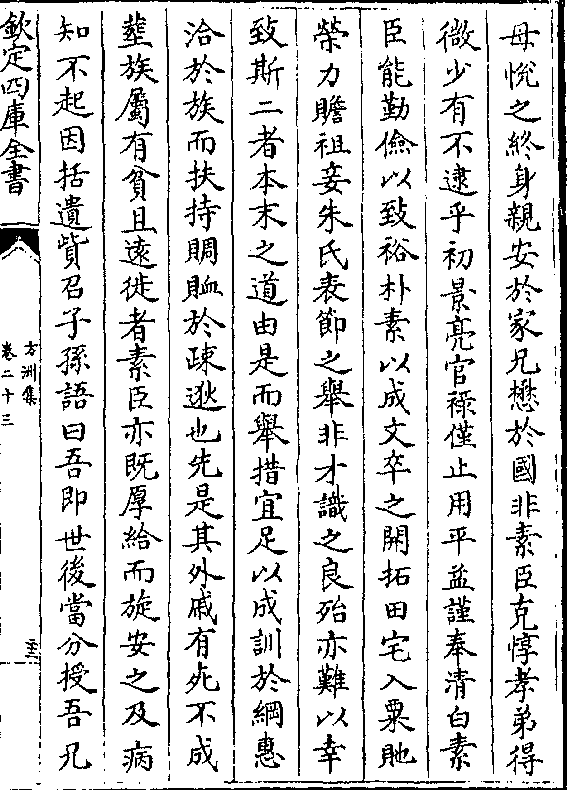 母悅之終身親安於家兄懋於國非素臣克惇孝弟得
微少有不逮乎初景亮官祿僅止用平益謹奉清白素
臣能勤儉以致裕朴素以成文卒之開拓田宅入粟貤
榮力贍祖妾朱氏表節之舉非才識之良殆亦難以幸
致斯二者本末之道由是而舉措宜足以成訓於綱惠
洽於族而扶持賙賉於疎逖也先是其外戚有死不成
塟族屬有貧且逺徙者素臣亦既厚給而旋安之及病
知不起因括遺貲召子孫語曰吾即世後當分授吾兄
欽定四庫全書
方洲集
卷二十三